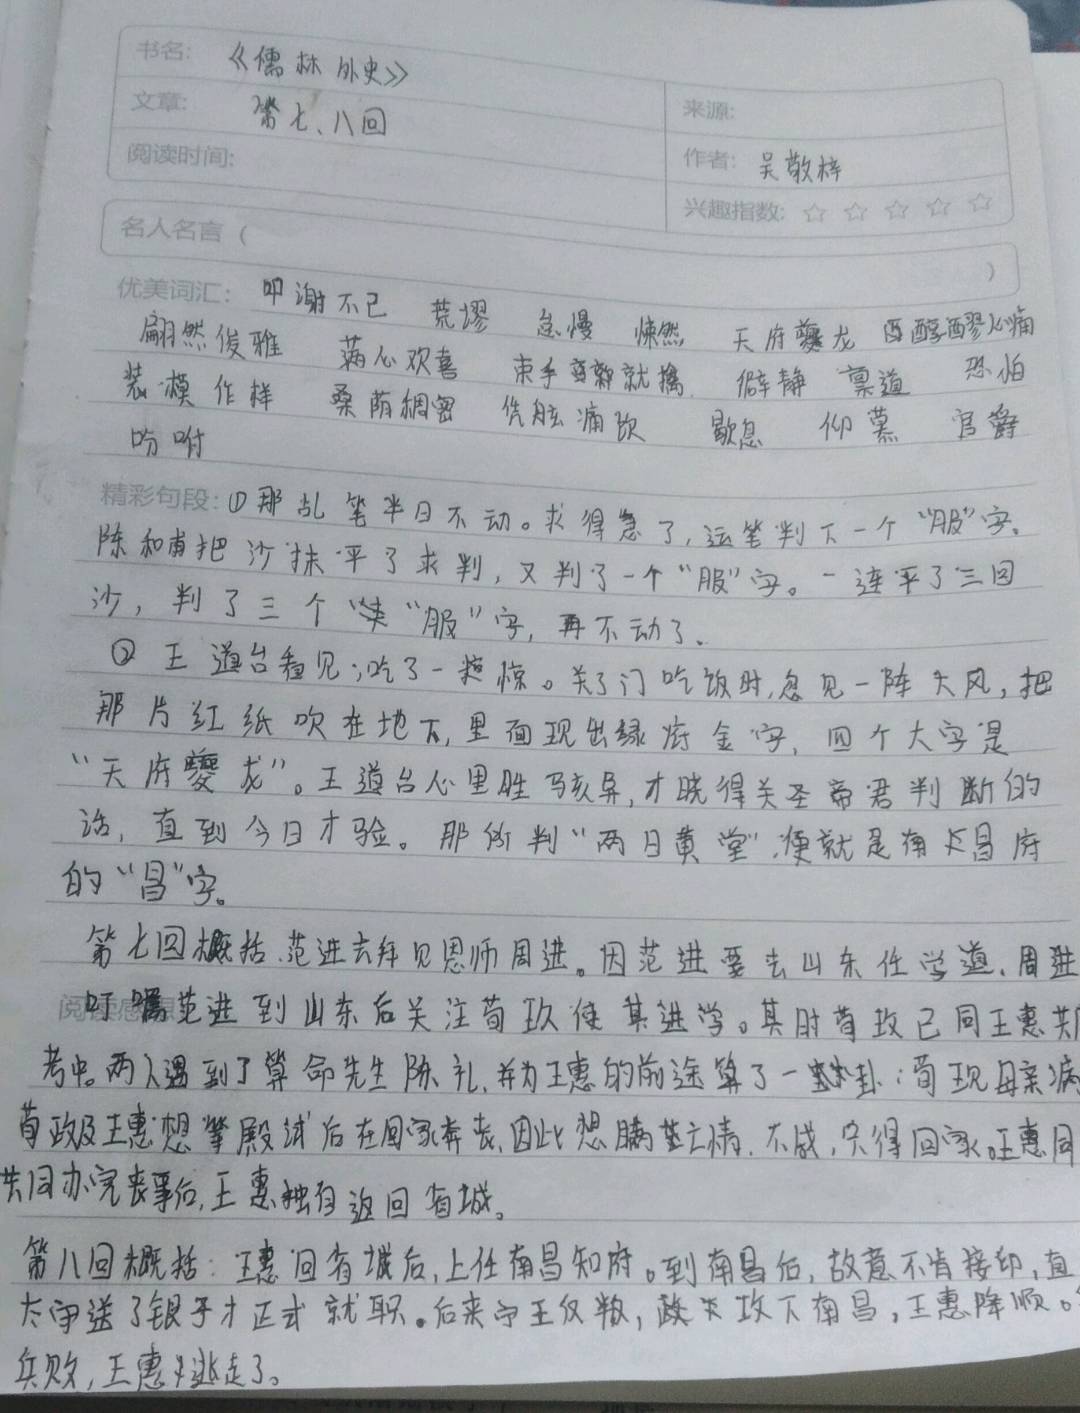 书名: 《儒林外史》
文章: 第七、八回
来源:
阅读时间:
作者: 吴敬梓
兴趣指数: ☆ ☆ ☆ ☆ ☆
名人名言 ( )
优美词汇: 叩谢不已 荒谬 怠慢 悚然 天府夔龙 酩酊醪心痛
翩然俊雅 满心欢喜 束手就擒 僻静 禀道 恐怕
装模作样 桑荫稠密 痛饮 歇息 仰慕 官爵
吩咐
精彩句段: ①那乩笔半日不动。求得急了,运笔判下一个“服”字。
陈和甫把沙抹平了求判,又判了一个“服”字。一连平了三回
沙,判了三个“服”字,再不动了。
② 王道台看见,吃了一惊。关了门吃饭时,忽见一阵大风,把
那片红纸吹在地下,里面现出绿底金字,四个大字是
“天府夔龙”。王道台心里胜骇异,才晓得关圣帝君判断的
话,直到今日才验。那所判“两日黄堂”,便就是南昌府
的“昌”字。
第七回概括.范进去拜见恩师周进。因范进要去山东任学道.周进
阅读感想
叮嘱范进到山东后关注荀玫使其进学。其时荀玫已同王惠共
考中。两人遇到了算命先生陈礼.并为王惠的前途算了一卦;荀玫母亲病
荀玫及王惠想等殿试后在回家奔丧,因此想瞒其亡情.不成,只得回家。王惠同
共同办完丧事后,王惠独自返回省城。
第八回概括:王惠回省城后,上任南昌知府。到南昌后,故意不肯接印,直
太守送了银子才正式就职。后来宁王反叛,攻下南昌,王惠降顺。
兵败,王惠逃走了。